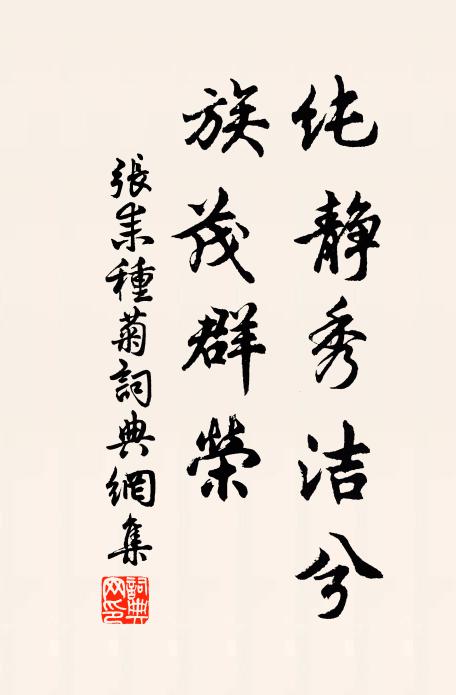 纯静秀洁兮
族茂群榮
張耒種菊詞典網集
詞典网印